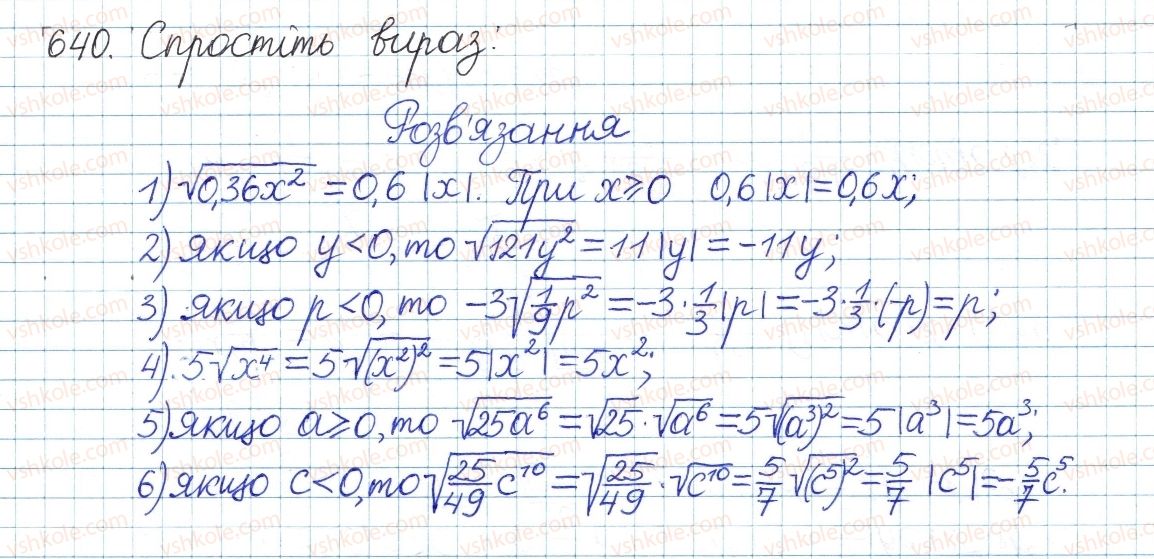 640. Спростіть вираз:
Розв'язання
1) √(0,36x²) = 0,6 |x|. При x ⩾ 0 0,6 |x| = 0,6x;
2) якщо y < 0, то √(121y²) = 11 |y| = -11y;
3) якщо p < 0, то -3√(1/9 p²) = -3 · 1/3 |p| = -3 · 1/3 · (-p) = p;
4) 5√(x⁴) = 5√((x²)²) = 5|x²| = 5x²;
5) якщо a ⩾ 0, то √(25a⁶) = √25 · √(a⁶) = 5√((a³)²) = 5 |a³| = 5a³;
6) якщо c < 0, то √(25/49 c¹⁰) = √(25/49) · √(c¹⁰) = 5/7 √((c⁵)²) = 5/7 |c⁵| = -5/7 c⁵.